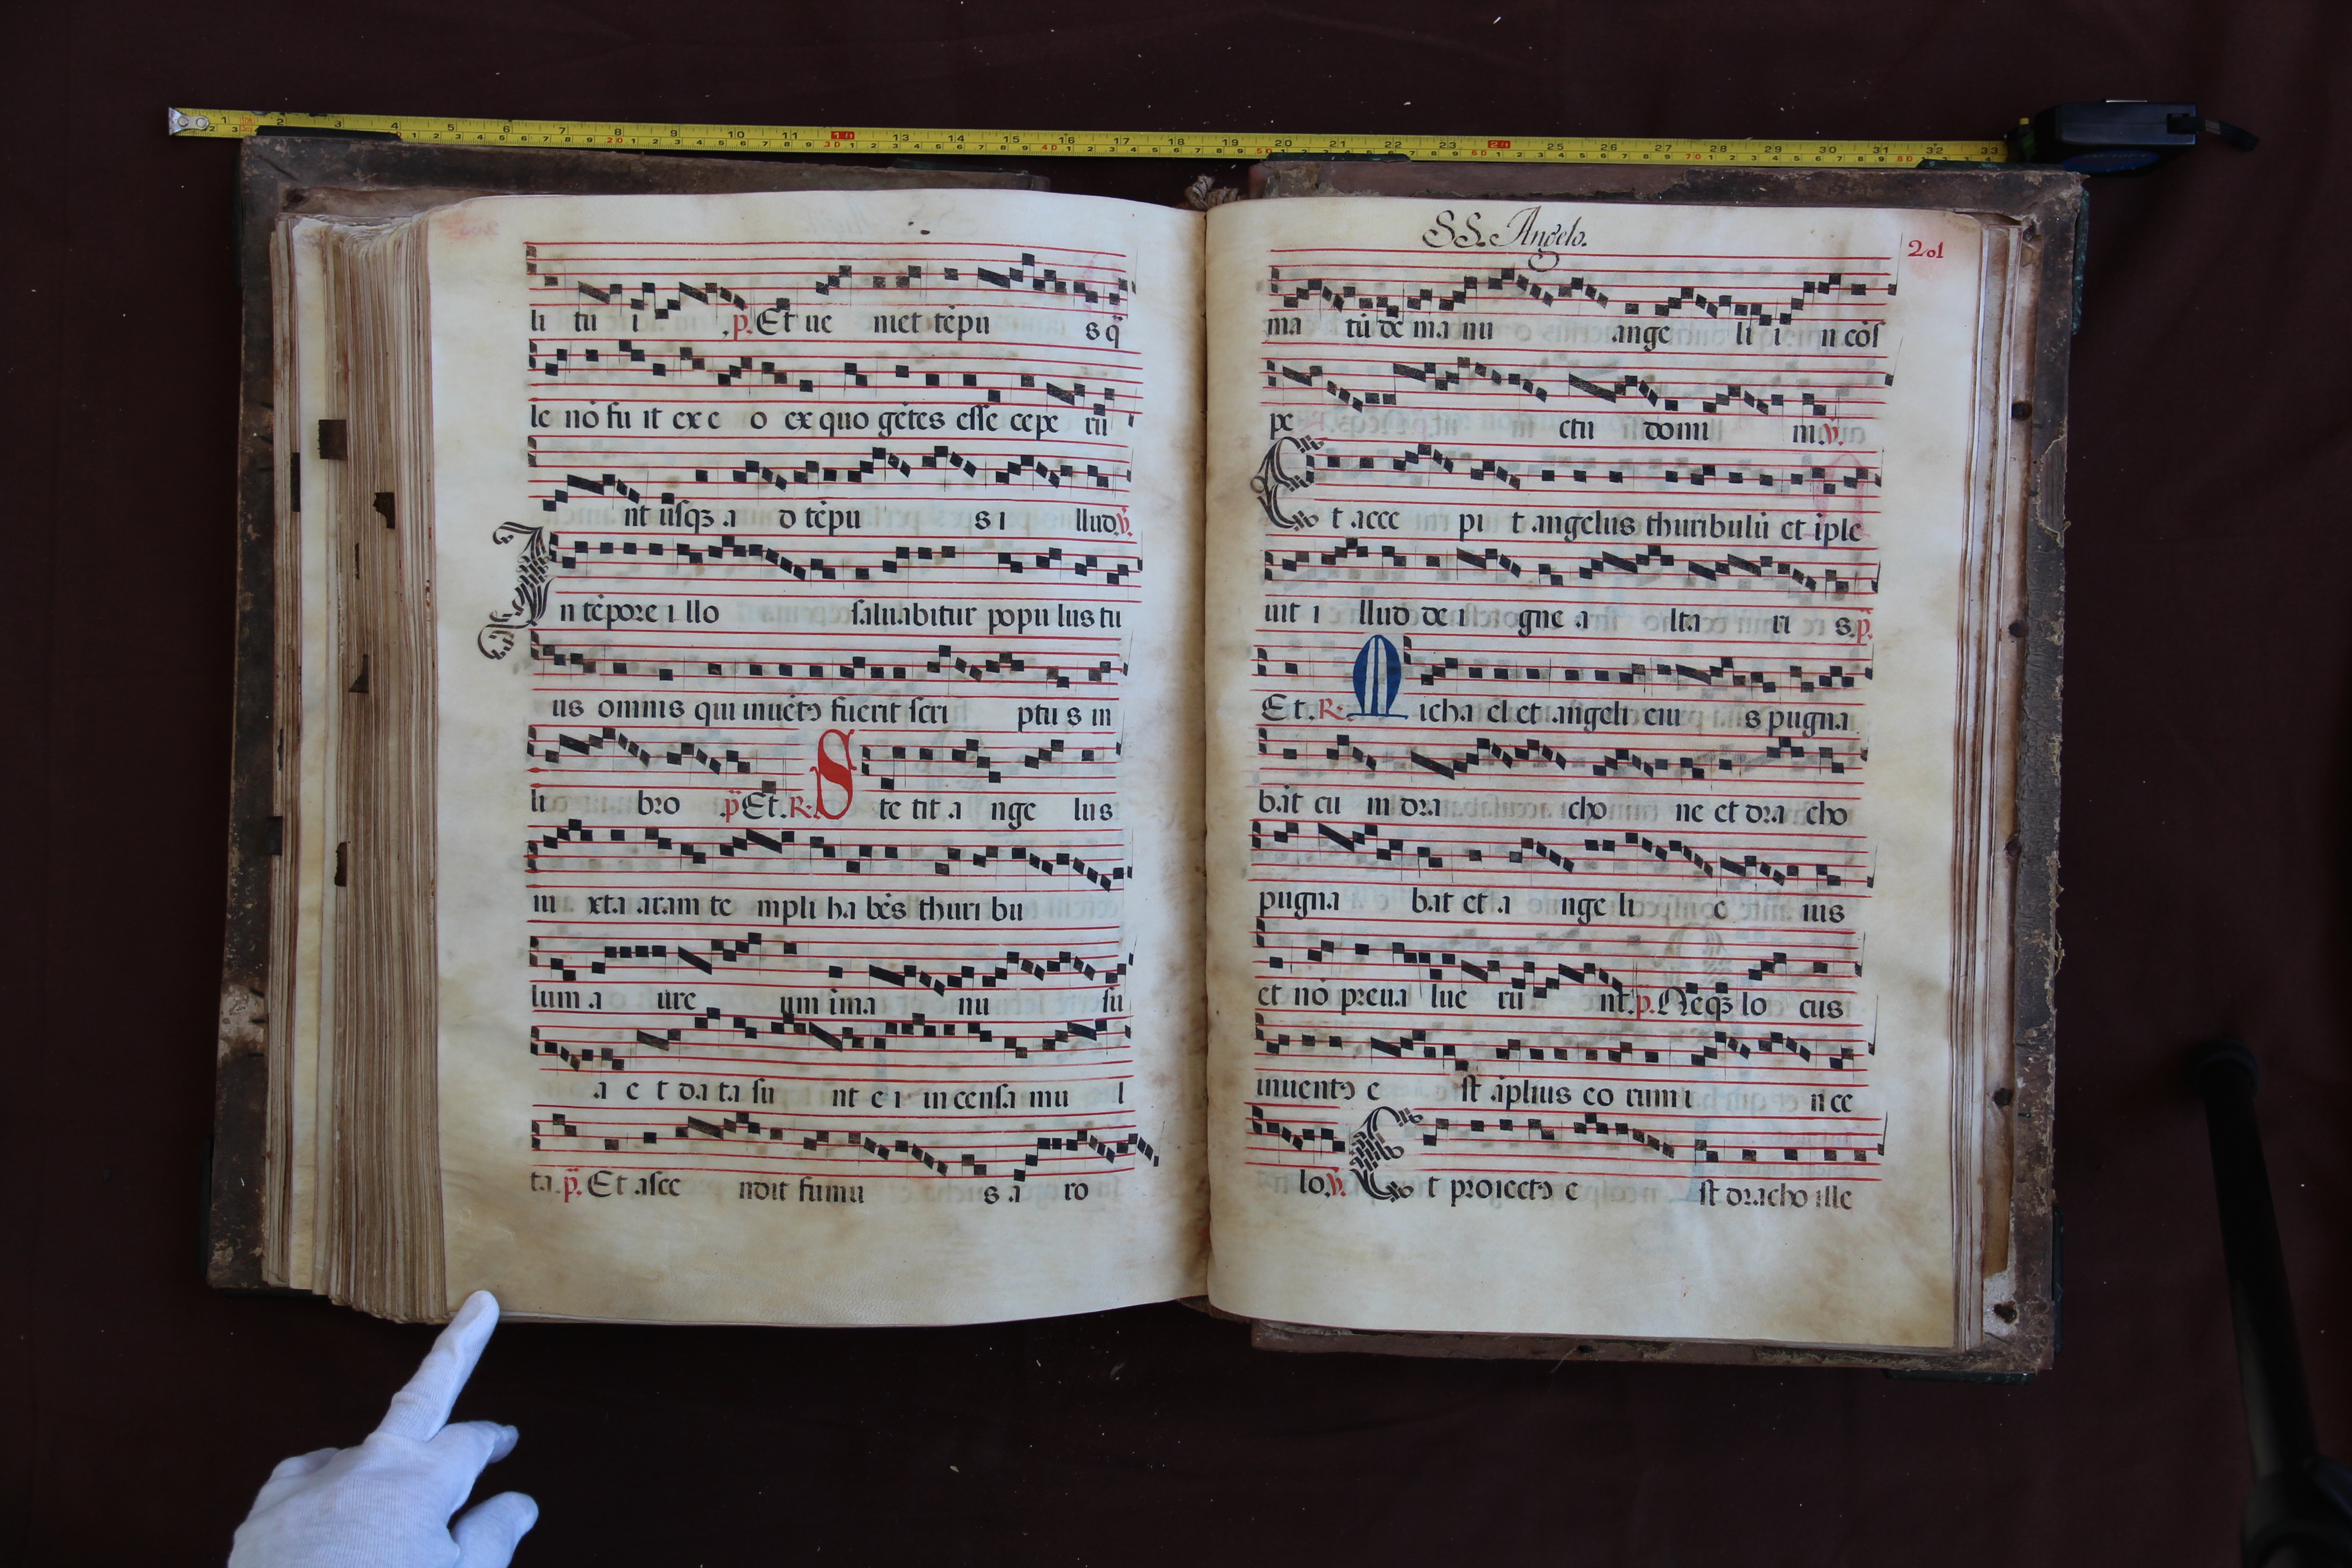 li tu i p. Et ue niet tēpu s q̄
le nō fu it ex e o ex quo gētes esse cepe rū
nt usqꝫ a d tēpu s i llud. ꝟ.
In tēpore i llo saluabitur popu lus tu
us omnis qui inuētꝰ fuerit scri ptu s in
li bro p̄ Et. R. Ste tit a nge lus
iu xta aram te mpli ha bēs thuri bu
lum a ure um ī ma nu su
a e t da ta su nt e i in censa mu l
ta. p̄. Et asce ndit fumu s a ro
SS. Angelo.
201
ma tū de ma nu ange li i n cōs
pe ctu domi ni. ꝟ.
Et acce pi t angelus thuribulū et īple
uit i llud de i gne a lta ri s. p̄.
Et. R. Micha el et angeli eiu s pugna
bāt cū in dra cho ne et dra cho
pugna bat et a nge li e ius
et nō preua lue rū nt. p̄. Neqꝫ lo cus
inuentꝰ e st āplius eo rum i n ce
lo. ꝟ. Et proiectꝰ e st dracho ille